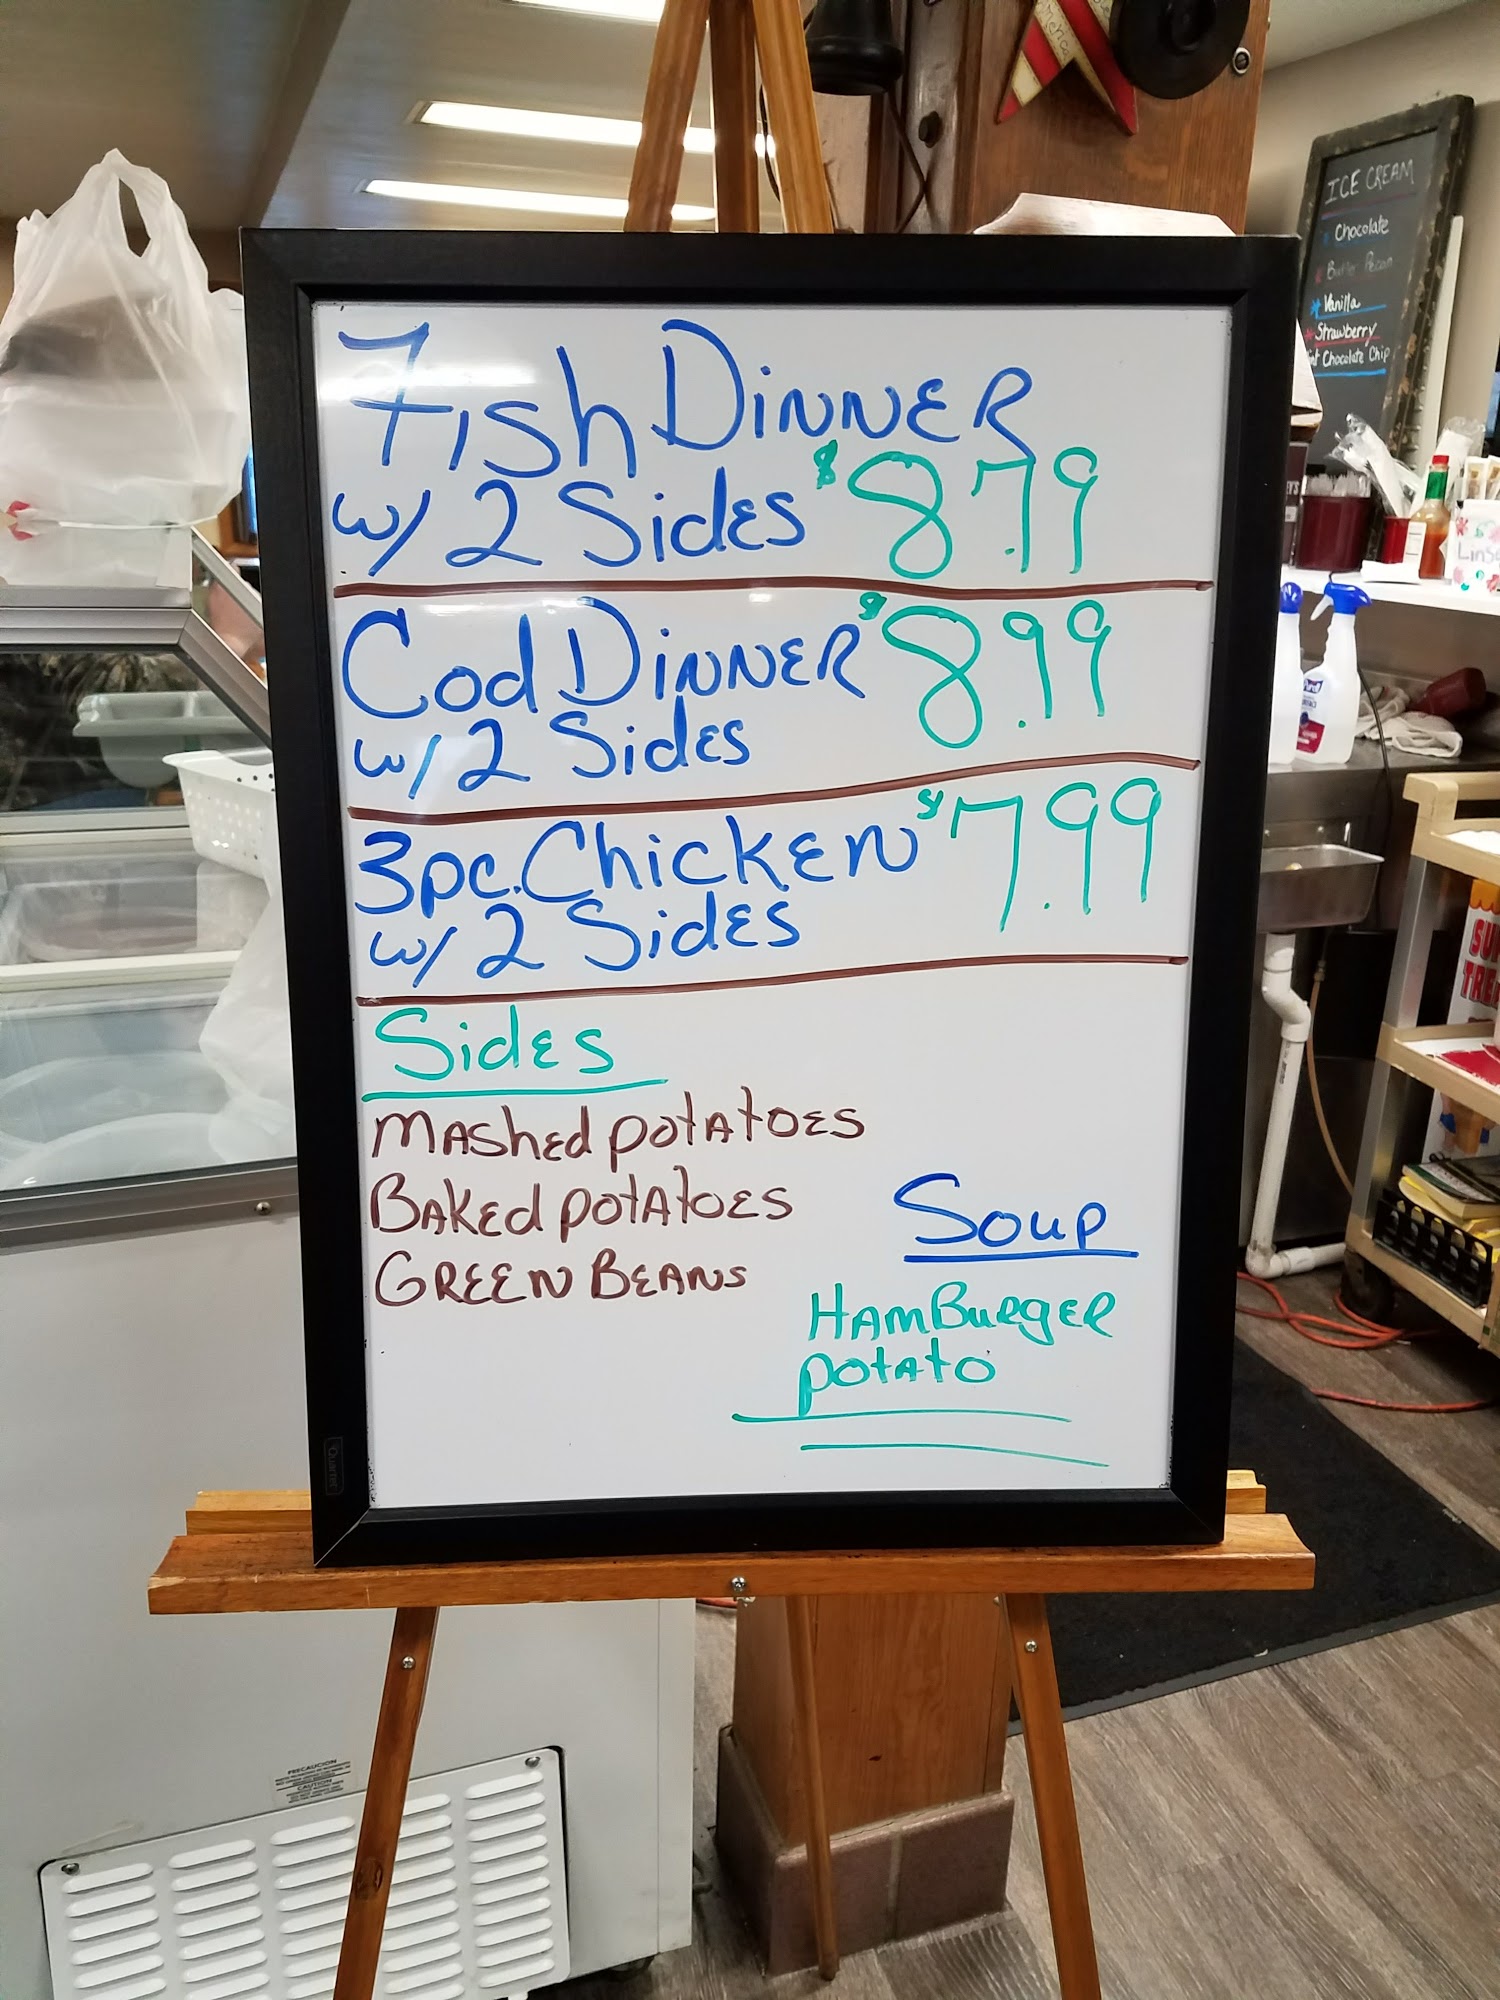 Fish Dinner
w/ 2 Sides $8.79
Cod Dinner $8.99
w/ 2 Sides
3pc. Chicken $7.99
w/ 2 Sides
Sides
Mashed potatoes
Baked potatoes
Green Beans
Soup
HamBurger
potato
ICE CREAM
Chocolate
Butter Pecan
Vanilla
Strawberry
Chocolate Chip
Quartet
PRECAUCION
CAUTION